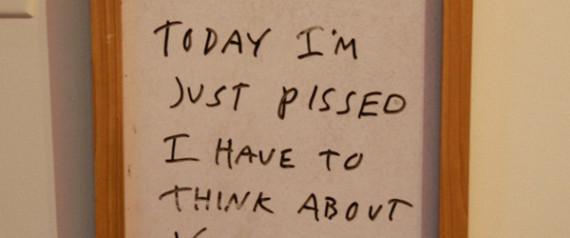 TODAY I'M
JUST PISSED
I HAVE TO
THINK ABOUT